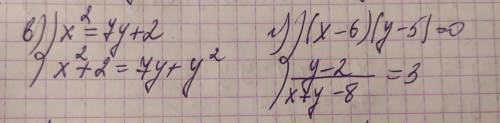 в) x² = 7y + 2
x² + 2 = 7y + y²
г) (x - 6)(y - 5) = 0
y - 2 / x + y - 8 = 3